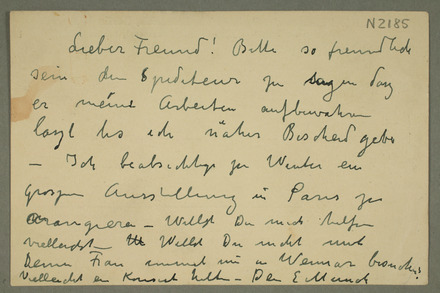 N2185
Lieber Freund! Bitte so freundlich
sein den Spediteur zu sagen daß
er meine Arbeiten aufbewahren
laßt bis ich näher Bescheid gebe
– Ich beabsichtige zu Winter ein
großen Ausstellung in Paris zu
arangieren – Willst Du mich helfen
vielleicht – Willst Du nicht mit
Deine Frau einmal mir in Weimar besuchen?
Vielleicht ein Konzert – Dein E Munch